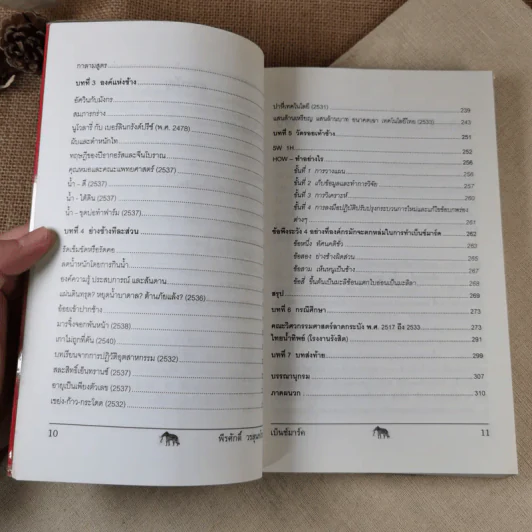 กาลามสูตร
บทที่ 3 องค์แห่งช้าง
อัศวินกับมังกร
สมการกร่าง
นูโวดารี กับ เบอร์ดินกรังด์ปรีซ์ (พ.ศ. 2478)
ผับและตำหนักไพ
ทฤษฎีของปิธากอรัสและจีนโบราณ
คุณหมอและคณะแพทยศาสตร์ (2537)
น้ำ - ดี (2537)
น้ำ - ใต้ดิน (2537)
น้ำ - ขุดบ่อทำฟาร์ม (2537)
บทที่ 4 ย่างช้างทีละส่วน
รัดเข็มขัดหรือรัดคอ
ลดน้ำหนักโดยการกินน้ำ
องค์ความรู้ ประสบการณ์ และสันดาน
แผ่นดินทรุด? หยุดน้ำบาดาล? ต้านภัยแล้ง? (2536)
อ้อยเข้าปากช้าง
มารจิ้งจอกพันหน้า (2538)
เกาไม่ถูกที่คัน (2540)
บทเรียนจากการปฏิวัติอุตสาหกรรม (2532)
สละสิทธิ์เอ็นทรานซ์ (2537)
อายุเป็นเพียงตัวเลข (2537)
เขย่ง-ก้าว-กระโดด (2532)
10
พีรศักดิ์
ป่าที่เทคโนโลยี (2531) 239
แสนล้านเหรียญ แสนล้านบาท อนาคตเอา เทคโนโลยีไทย (2533) 243
บทที่ 5 วัดรอยเท้าช้าง 251
5W 1H 252
HOW – ทำอย่างไร 256
ขั้นที่ 1 การวางแผน 256
ขั้นที่ 2 เก็บข้อมูลและทำการวิจัย 257
ขั้นที่ 3 การวิเคราะห์ 258
ขั้นที่ 4 การลงมือปฏิบัติปรับปรุงกระบวนการใหม่และแก้ไขข้อบกพร่อง
ต่างๆ 261
ข้อพึงระวัง 4 อย่างที่องค์กรมักจะตกหล่มในการทำเบ็นช์มาร์ค 262
ข้อหนึ่ง ทัศนคติชั่ว 263
ข้อสอง ย่างช้างผิดส่วน 265
ข้อสาม เห็นหนูเป็นช้าง 267
ข้อสี่ ขึ้นต้นเป็นมะลิซ้อนแตกใบอ่อนเป็นมะลิลา 268
สรุป 269
บทที่ 6 กรณีศึกษา 273
คณะวิศวกรรมศาสตร์ลาดกระบัง พ.ศ. 2517 ถึง 2533
ไทยน้ำทิพย์ (โรงงานรังสิต) 286
บทที่ 7 บทส่งท้าย 299
บรรณานุกรม 307
ภาคผนวก 310
เบ็นช์มาร์ค
11